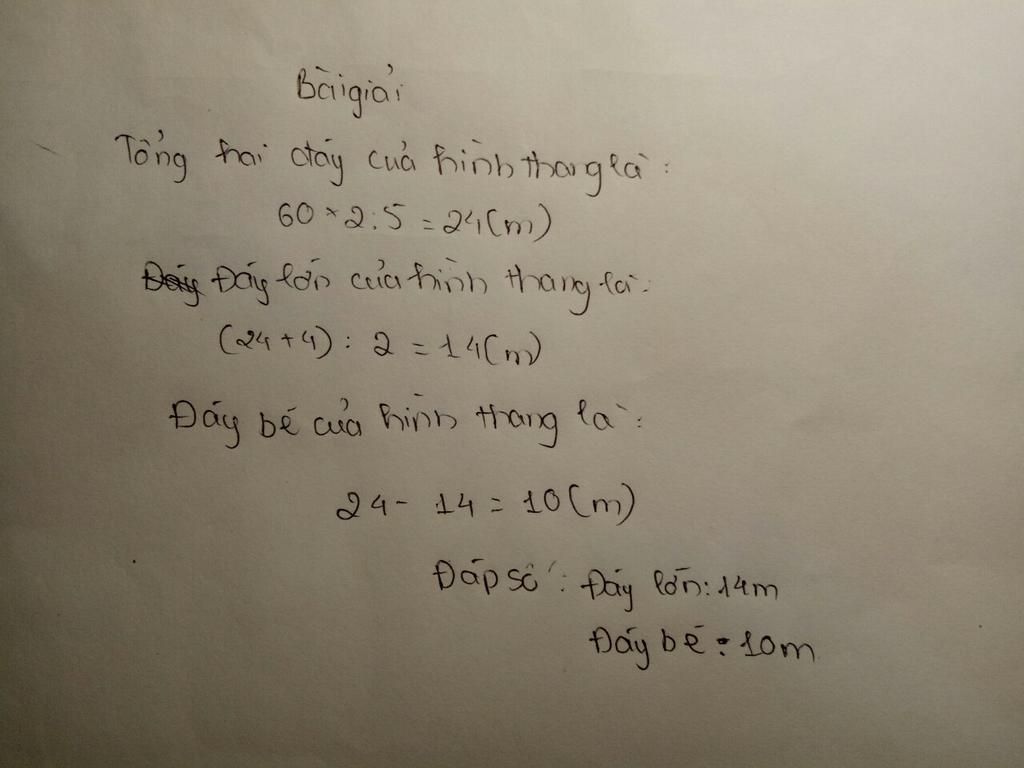 Bài giải
Tổng hai đáy của hình thang là:
60 × 2 : 5 = 24 (m)
Đáy Đáy lớn của hình thang là:
(24 + 4) : 2 = 14 (m)
Đáy bé của hình thang là:
24 - 14 = 10 (m)
Đáp số: Đáy lớn: 14m
Đáy bé: 10m